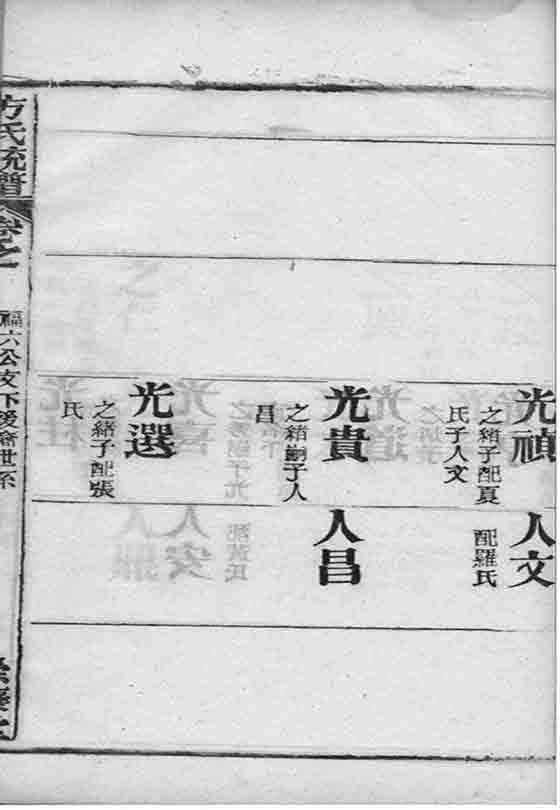 光禎
之緒子配夏
氏子人文
人文
配羅氏
光貴
之緒嗣子人
昌
人昌
光選
之緒子配張
氏
方氏統譜
卷之
福六公支下後裔世系